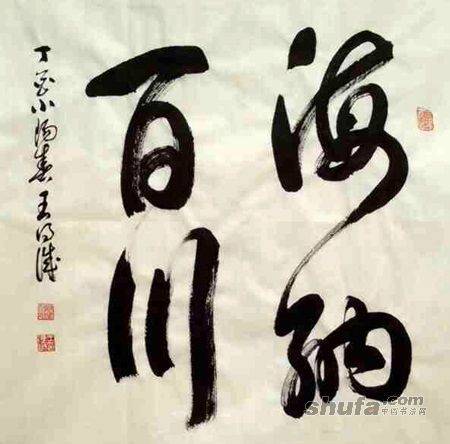 海纳
百川
小陽春 王
shufa.com
中国书法网